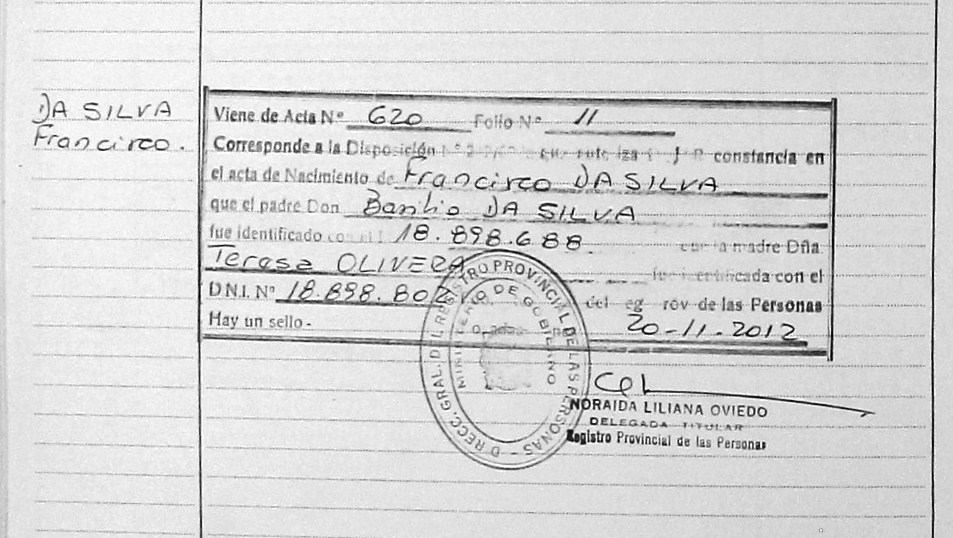 DA SILVA
Francisco.
Viene de Acta Nº 620 Folio Nº 11
Corresponde a la Disposición constancia en
el acta de Nacimiento de Francisco DA SILVA
que el padre Don Basilio DA SILVA
fue identificado con 18.898.688 madre Dña.
Teresa OLIVERA fue identificada con el
D.N.I. Nº 18.898.802 del de las Personas
Hay un sello.- 20-11-2012
DIRECC. GRAL. DEL REGISTRO PROVINCIAL DE LAS PERSONAS -
MINISTERIO DE GOBIERNO
NORAIDA LILIANA OVIEDO
DELEGADA TITULAR
Registro Provincial de las Personas